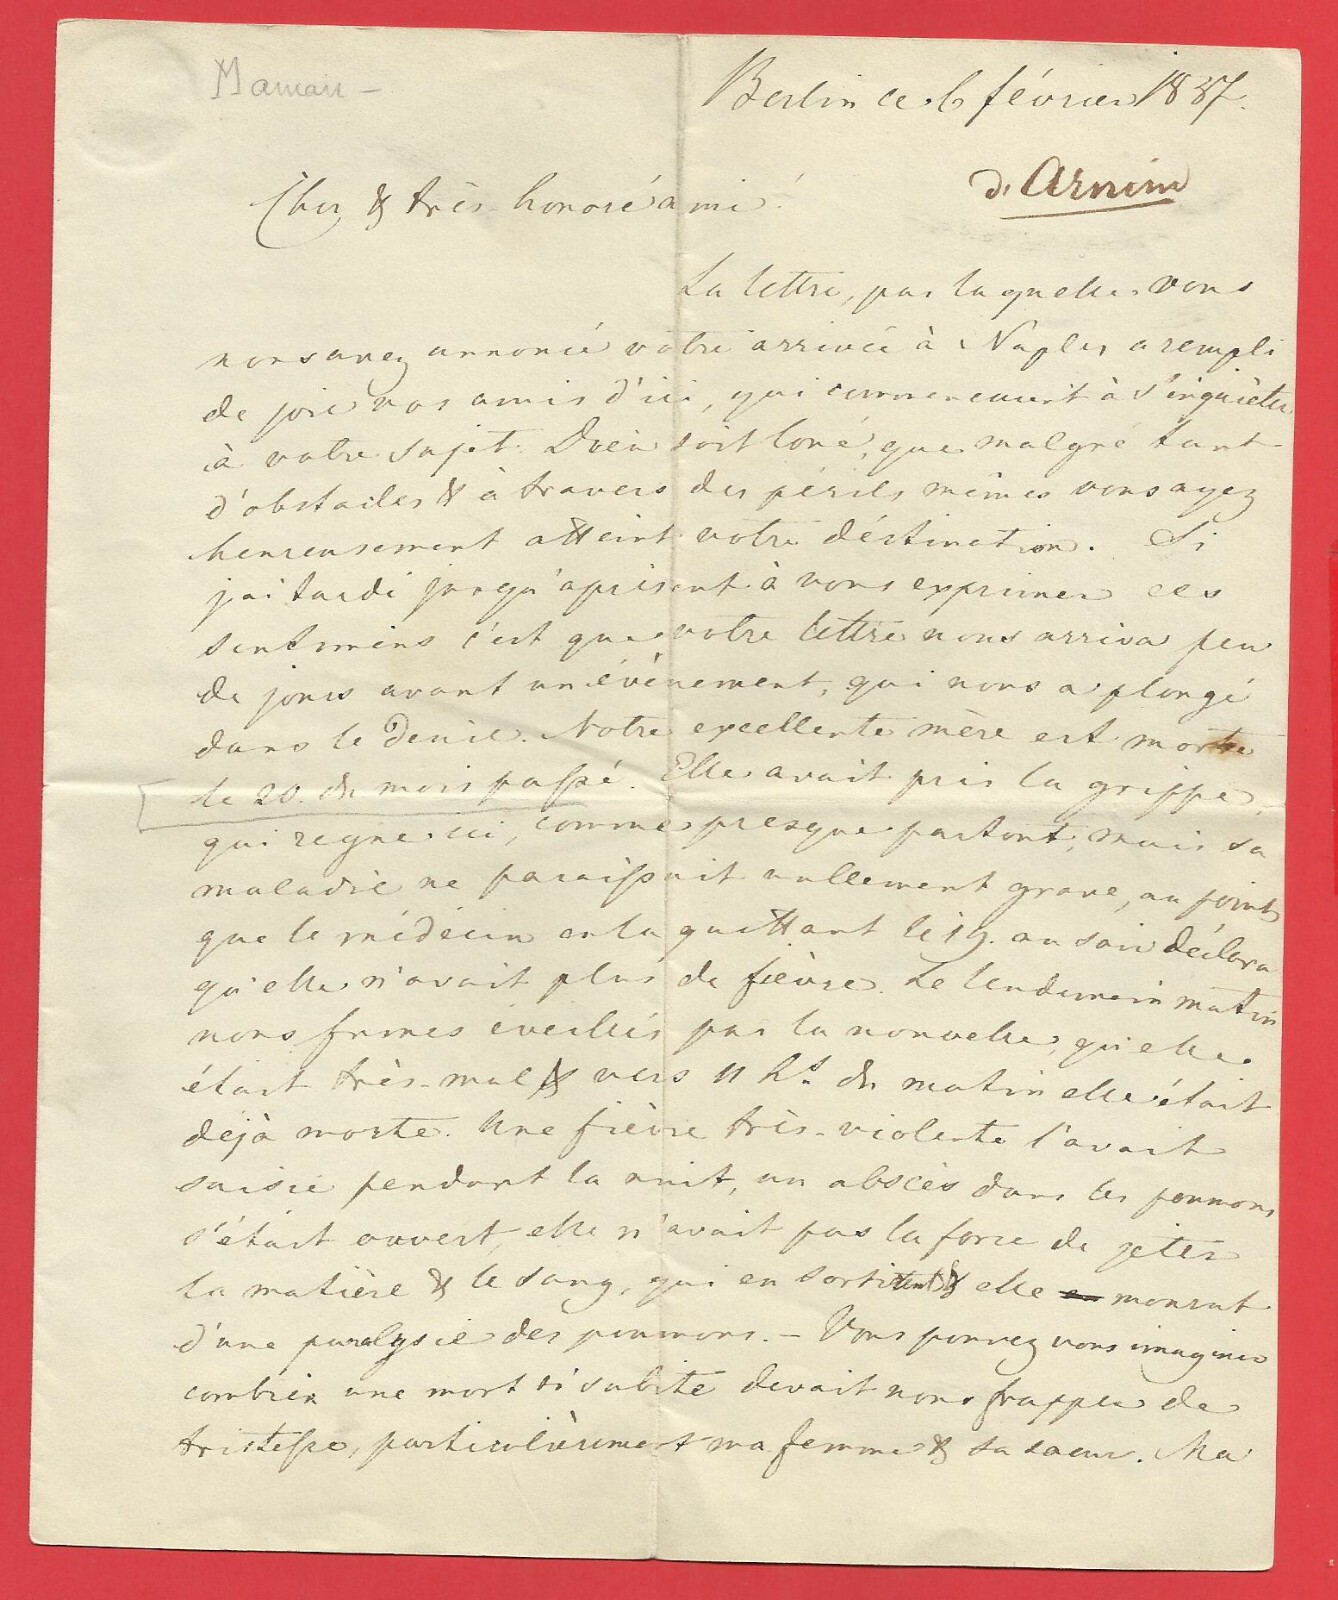 Maman -
Berlin ce 6 février 1837.
d'Arnim
Cher & très-honoré ami!
La lettre, par laquelle vous
nous avez annoncé votre arrivée à Naples a rempli
de joie vos amis d'ici, qui commencaient à s'inquièter
à votre sujet. Dieu soit loué, que malgré tant
d'obstacles & à travers des périls mêmes vous ayez
heureusement atteint votre déstination. Si
j'ai tardé jusqu'aprisent à vous exprimer ces
sentimens c'est que votre lettre nous arriva peu
de jours avant un évènement, qui nous a plongé
dans le deuil. Notre excellente mère est morte
le 20. du mois passé. Elle avait pris la grippe,
qui regne ici, comme presque partout, mais sa
maladie ne paraissait nullement grave, au point
que le médecin en la quittant le 19. au soir déclara
qu'elle n'avait plus de fièvre. Le lendemain matin
nous fumes éveillés par la nouvelle, qu'elle
était très-mal & vers 11 hs. du matin elle était
déjà morte. Une fièvre très-violente l'avait
saisie pendant la nuit, un abscès dans les poumons
s'était ouvert, elle n'avait pas la force de jeter
la matière & le sang, qui en sortitent & elle mourut
d'une paralysie des poumons. - Vous pouvez vous imaginer
combien une mort si subite devait nous frapper de
tristesse, particulièrement ma femme & sa soeur. Ma